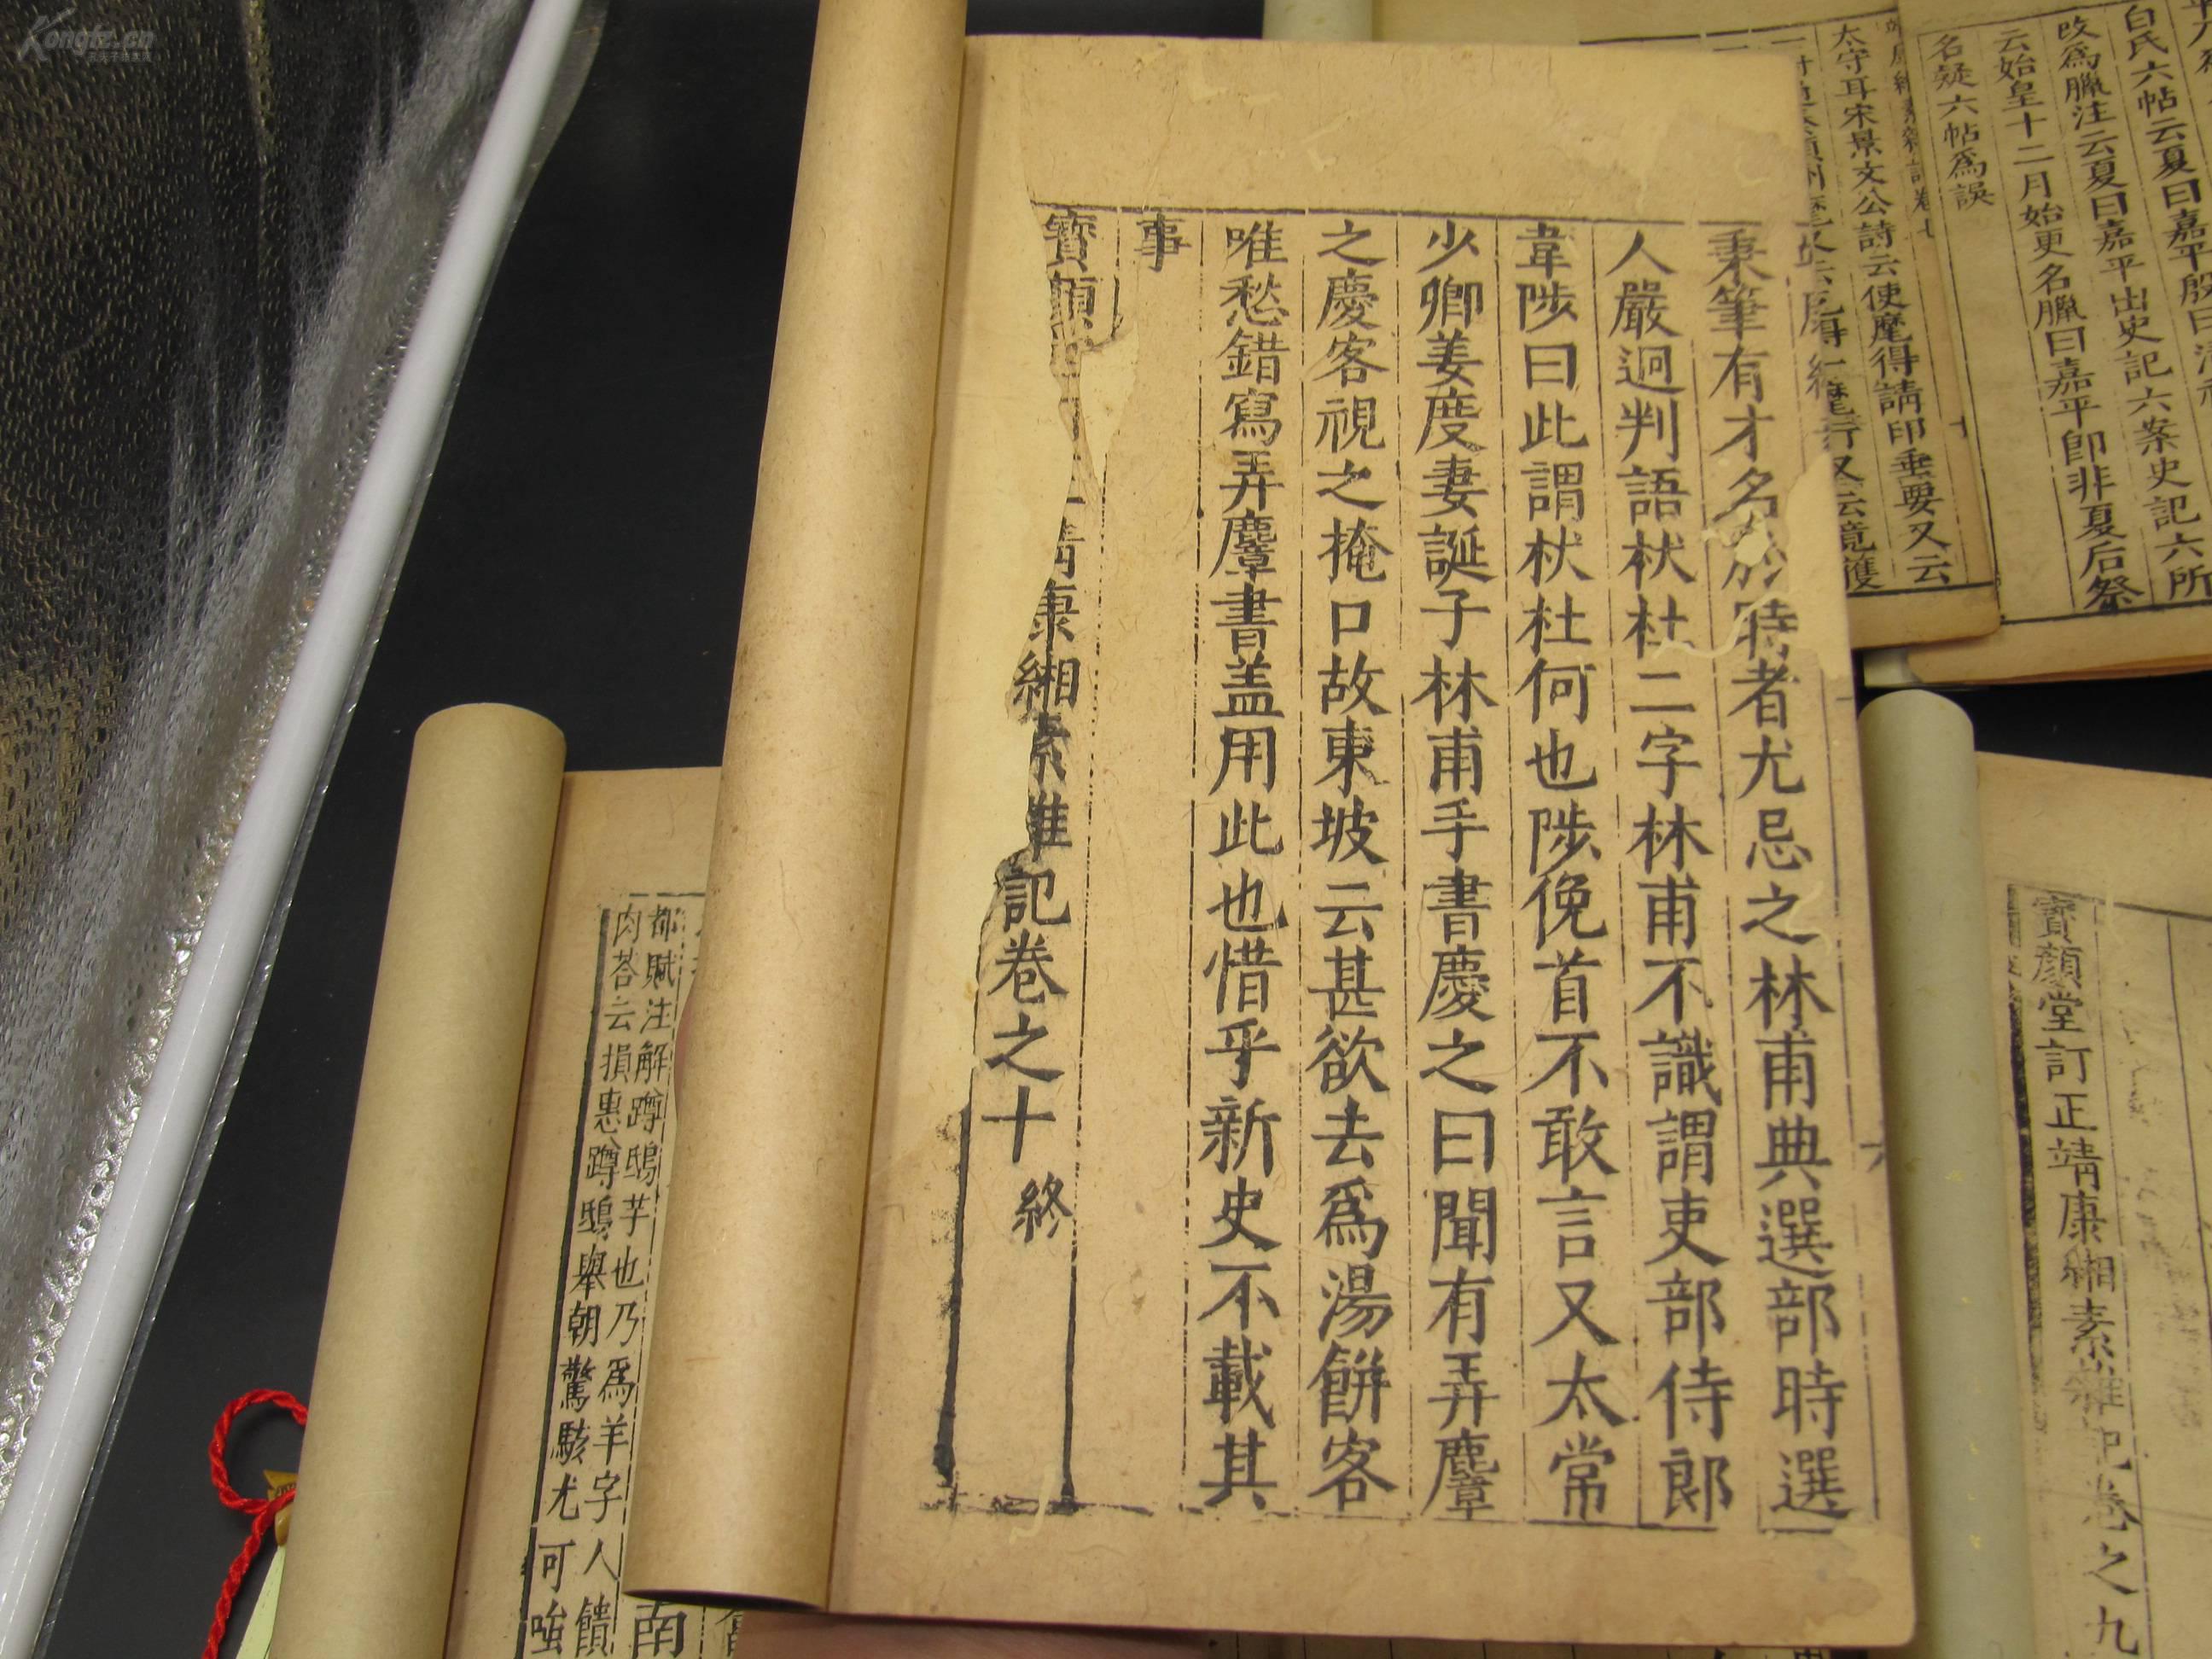 秉筆有才名於時者尤忌之林甫典選部時選
人嚴迥判語杕杜二字林甫不識謂吏部侍郎
韋陟曰此謂杕杜何也陟俛首不敢言又太常
少卿姜度妻誕子林甫手書慶之曰聞有弄麞
之慶客視之掩口故東坡云甚欲去爲湯餅客
唯愁錯寫弄麞書盖用此也惜乎新史不載其
事
寶顏 靖康緗素雜記卷之十 終
白氏六帖云夏曰嘉平殷曰清祀
改爲臘注云夏曰嘉平出史記六案史記六所
云始皇十二月始更名臘曰嘉平卽非夏后祭
名疑六帖爲誤
太守耳宋景文公詩云使麾得請印垂要又云
寶顏堂訂正靖康緗素雜記卷之九
都賦注解蹲鴟芋也乃爲羊字人饋
肉荅云損惠蹲鴟舉朝驚駭尤可咍
Kongfz.cn